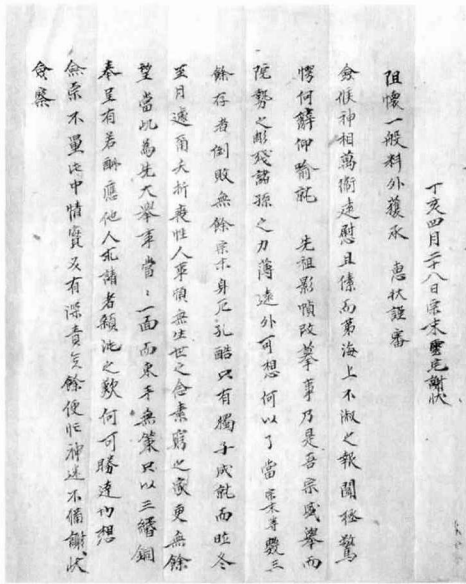 丁亥四月二十八日宗末雲謝狀
阻懷一般料外獲承 惠狀謹審
僉候神相萬衛遠慰且傃而第海上不淑之報聞極驚
愕何辭仰喻就 先祖影幀改摹事乃是吾宗盛擧而
勢之彫殘諸孫之力薄遠外可想何以了當宗末等數三
餘存者倒敗無餘宗末身厄孔酷只有獨子成就而昨冬
至月遽爾夭折喪性人事頓無生世之念素窮之家更無餘
望當此為先大擧事當〻一面而束手無策只以三緡銅
奉呈有若酬應他人求請者顏之歎何可勝達內想
僉不量此中情實又有深責矣餘便忙神迷不備謝狀
僉察